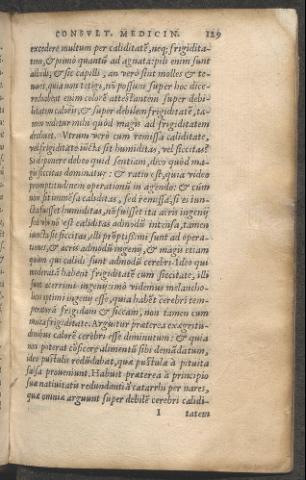 CONSVLT. MEDICIN. 129
excedere multum per caliditatẽ, neq; frigidita-
tem, & primò quantũ ad agnata: pili enim sunt
& sic capilli, an verò sint molles & te-
nues, quia non tetigi, nõ possum super hoc dice-
re: habent enim colorẽ attestantem super debi-
& super debilem frigiditatẽ, ta-
men videtur mihi quòd magis ad frigiditatem
Vtrum verò cum remissa caliditate,
vel frigiditate iũcta sit humiditas, vel siccitas?
Si deponere debeo quid sentiam, dico quòd ma-
gis siccitas dominatur: & ratio est, quia video
promptitudinem operationũ in agendo: & cùm
non sit immẽsa caliditas, sed remissa, si ei iun-
cta fuisset humiditas, nõ fuisset ita acris ingenij
est caliditas admodũ intensa, tamen
iuncta sit siccitas, illi prõptissimi sunt ad opera-
tiones, & acris admodũ ingenij, & magis etiam
quàm qui calidi sunt admodũ cerebri. Ideo qui
moderatã habent frigiditatẽ cum siccitate, illi
sunt acerrimi ingenij: imò videmus melancho-
licos optimi ingenij esse, quia habẽt cerebri tem-
peraturã frigidam & siccam, non tamen cum
multa frigiditate. Arguitur præterea ex
calorẽ cerebri esse diminutum: & quia
non poterat cõficere alimentũ sibi demãdatum,
ideo pustulis redũdabat, quæ pustulæ à pituita
salsa proueniunt. Habuit præterea à principio
suæ natiuitatis redundantiã catarrhi per nares,
quæ omnia arguunt super debilẽ cerebri calidi-
I tatem